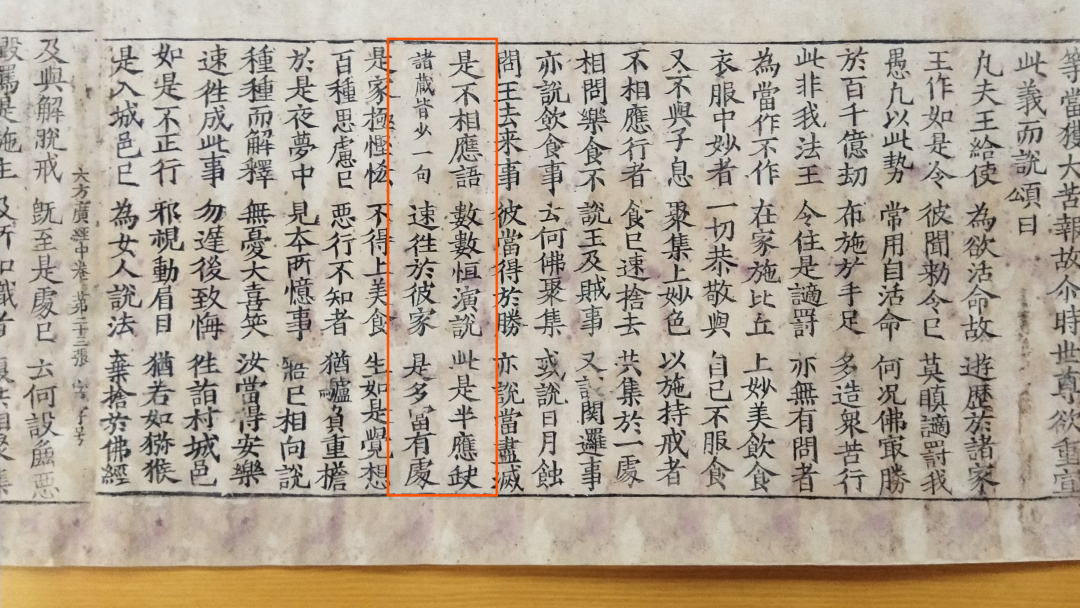 等當獲大苦報故尒時世尊欲重宣
此義而說頌曰
凡夫王給使 為欲活命故 遊歷於諸家
王作如是令 彼聞勅令已 莫瞋讁罰我
愚凡以此勢 常用自活命 何況佛㝡勝
於百千億劫 布施於手足 多造衆苦行
此非我法王 令住是讁罰 亦無有問者
為當作不作 在家施比丘 上妙美飲食
衣服中妙者 一切恭敬與 自己不服食
又不與子息 聚集上妙色 以施持戒者
不相應行者 食已速捨去 共集於一處
相問樂食不 說王及賊事 又說閻邏事
亦說飲食事 云何佛聚集 或說日月蝕
問王去来事 彼當得於勝 亦說當盡滅
是不相應語 數數恒演說 此是半應缺
諸藏皆少一句 速往於彼家 是多富有處
是家極慳悋 不得上美食 生如是覺想
百種思慮已 惡行不知者 猶驢負重檐
於是夜夢中 見本所憶事 寤已相向說
種種而解釋 無憂大喜英 汝當得安樂
速往成此事 勿遲後致悔 往詣村城邑
如是不正行 邪視動眉目 猶若如獼猴
是入城邑已 為女人說法 棄捨於佛經
大方廣經中卷 第二十三張 字号
及與解脫戒 既至是處已 云何設麁惡
毀罵是施主